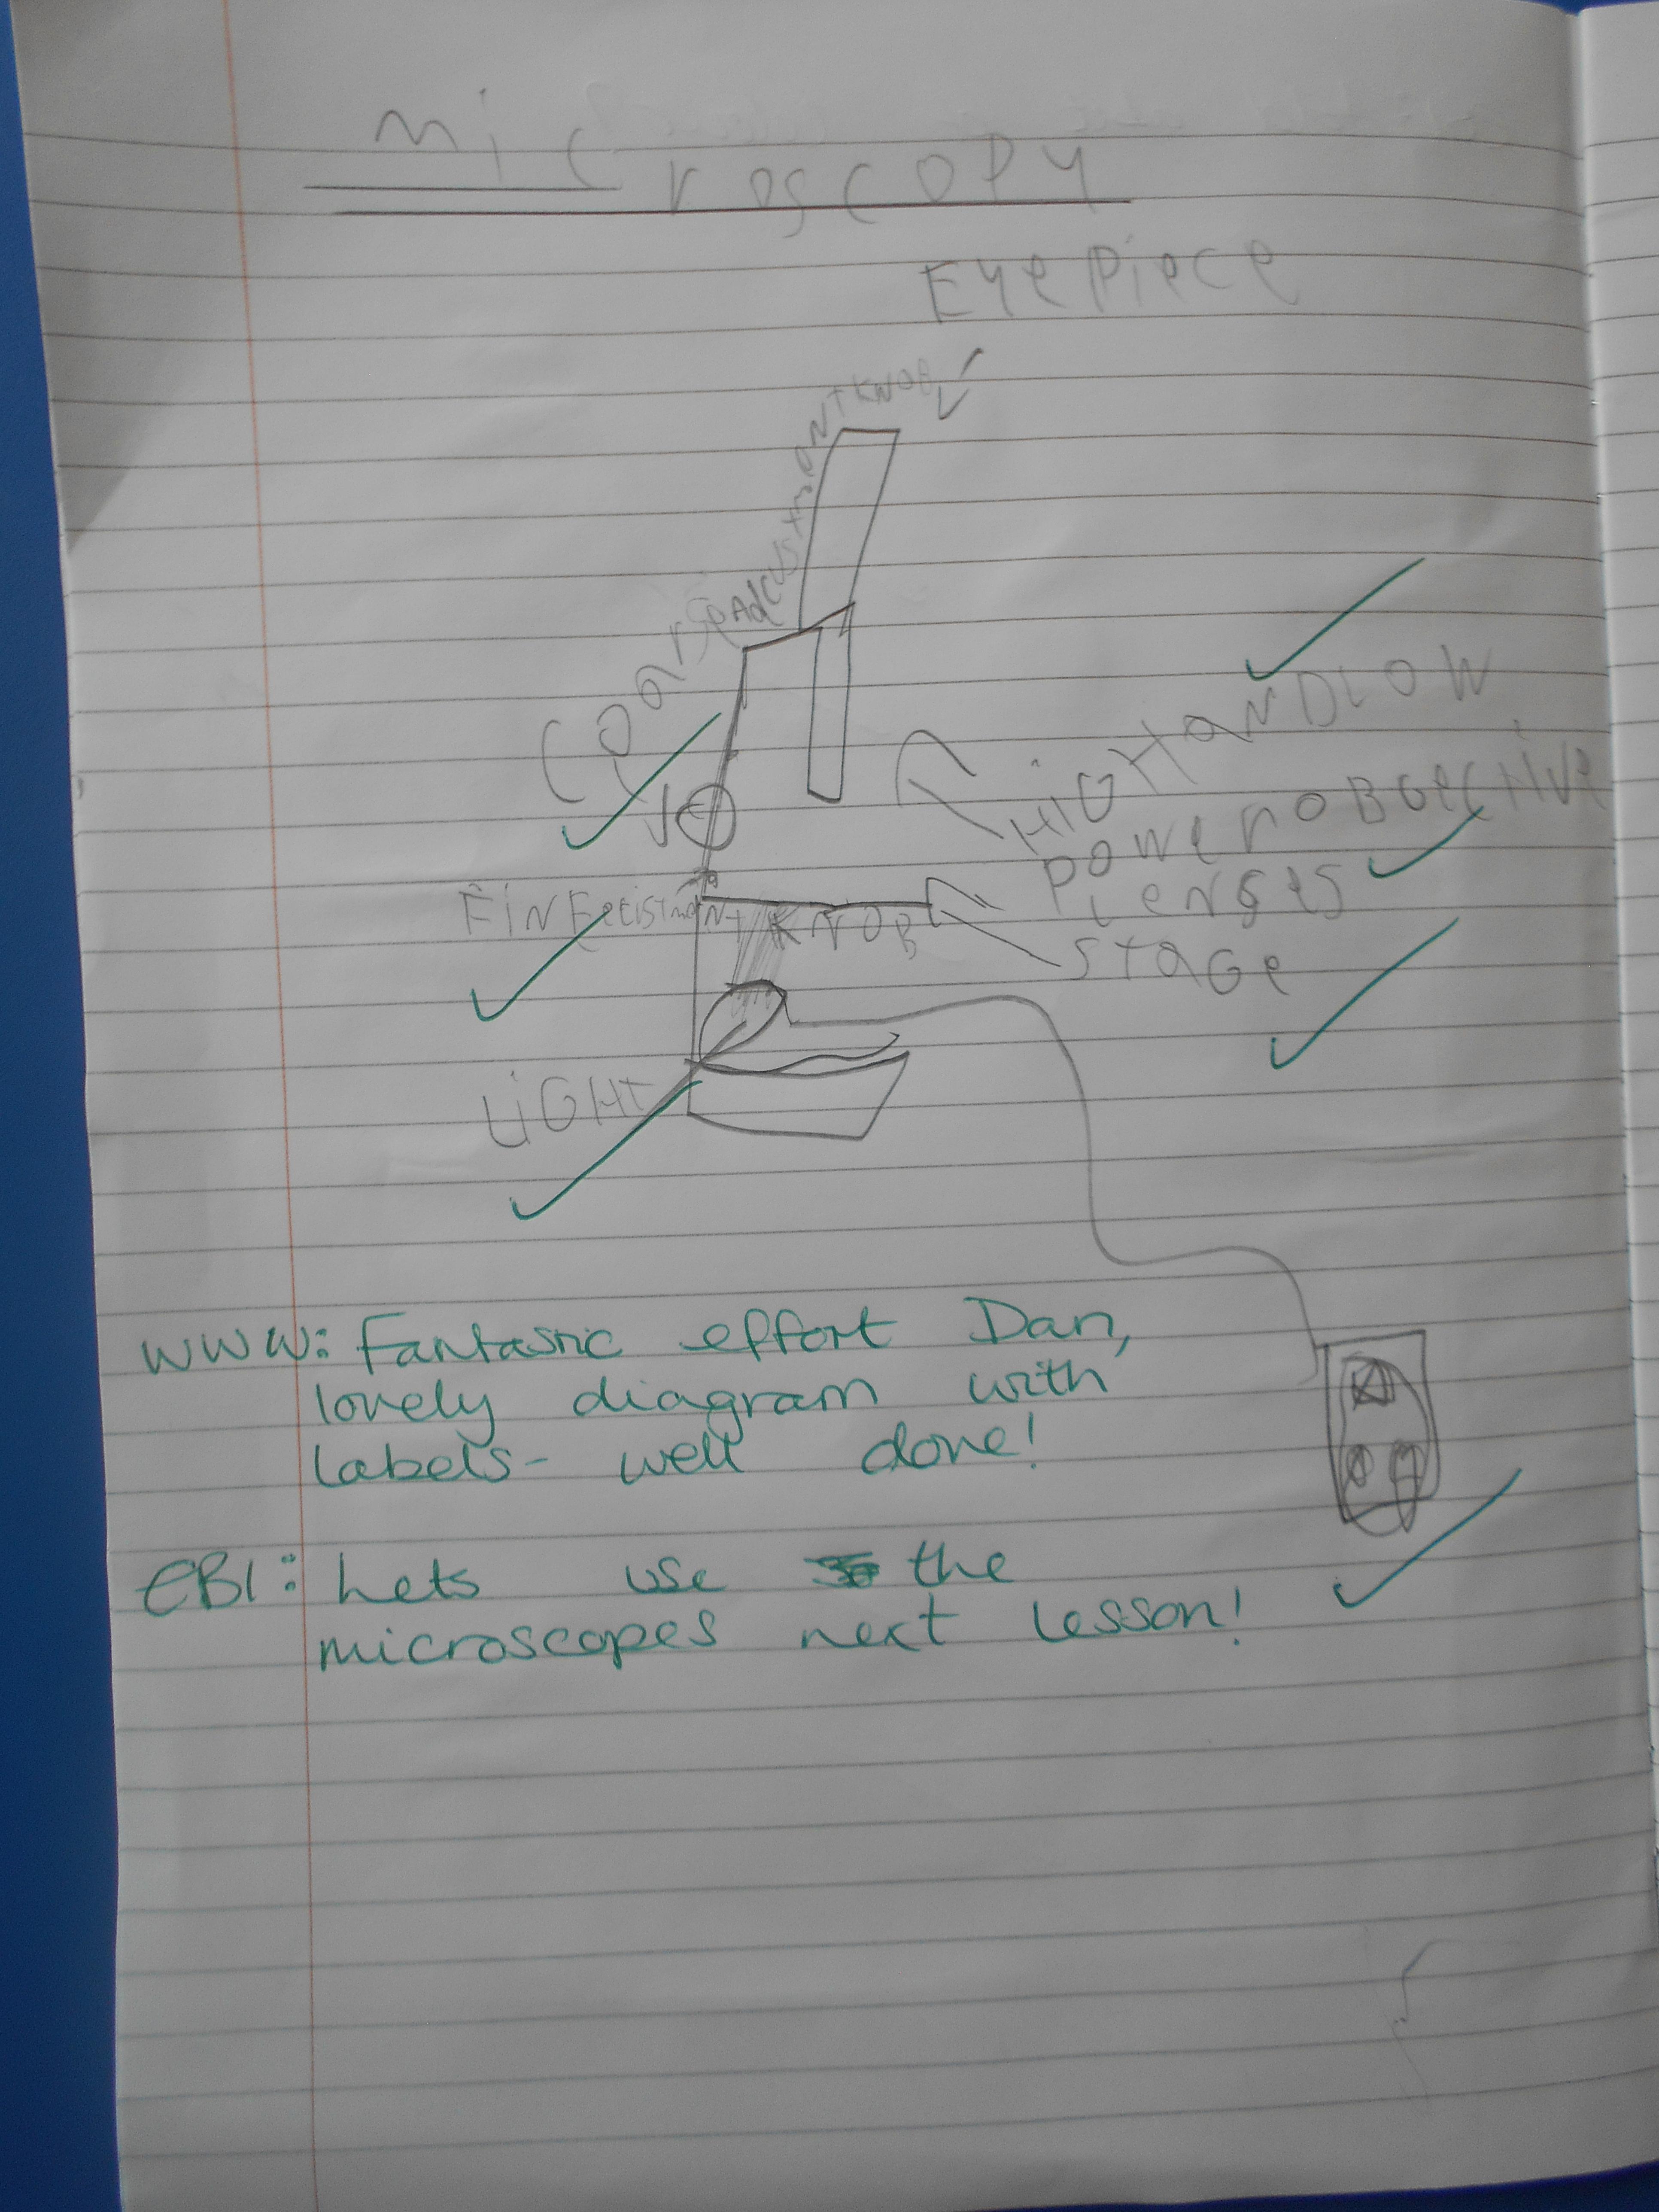 mic
roscopy
EyePiece
COarseAdcustmONtKNOB
HiGHaNDLOW
PowerOBGective
LeNses
FiNE KNOB
STaGe
LiGHT
WWW: Fantastic effort Dan,
lovely diagram with
labels- well done!
EBI: Lets use the
microscopes next lesson!